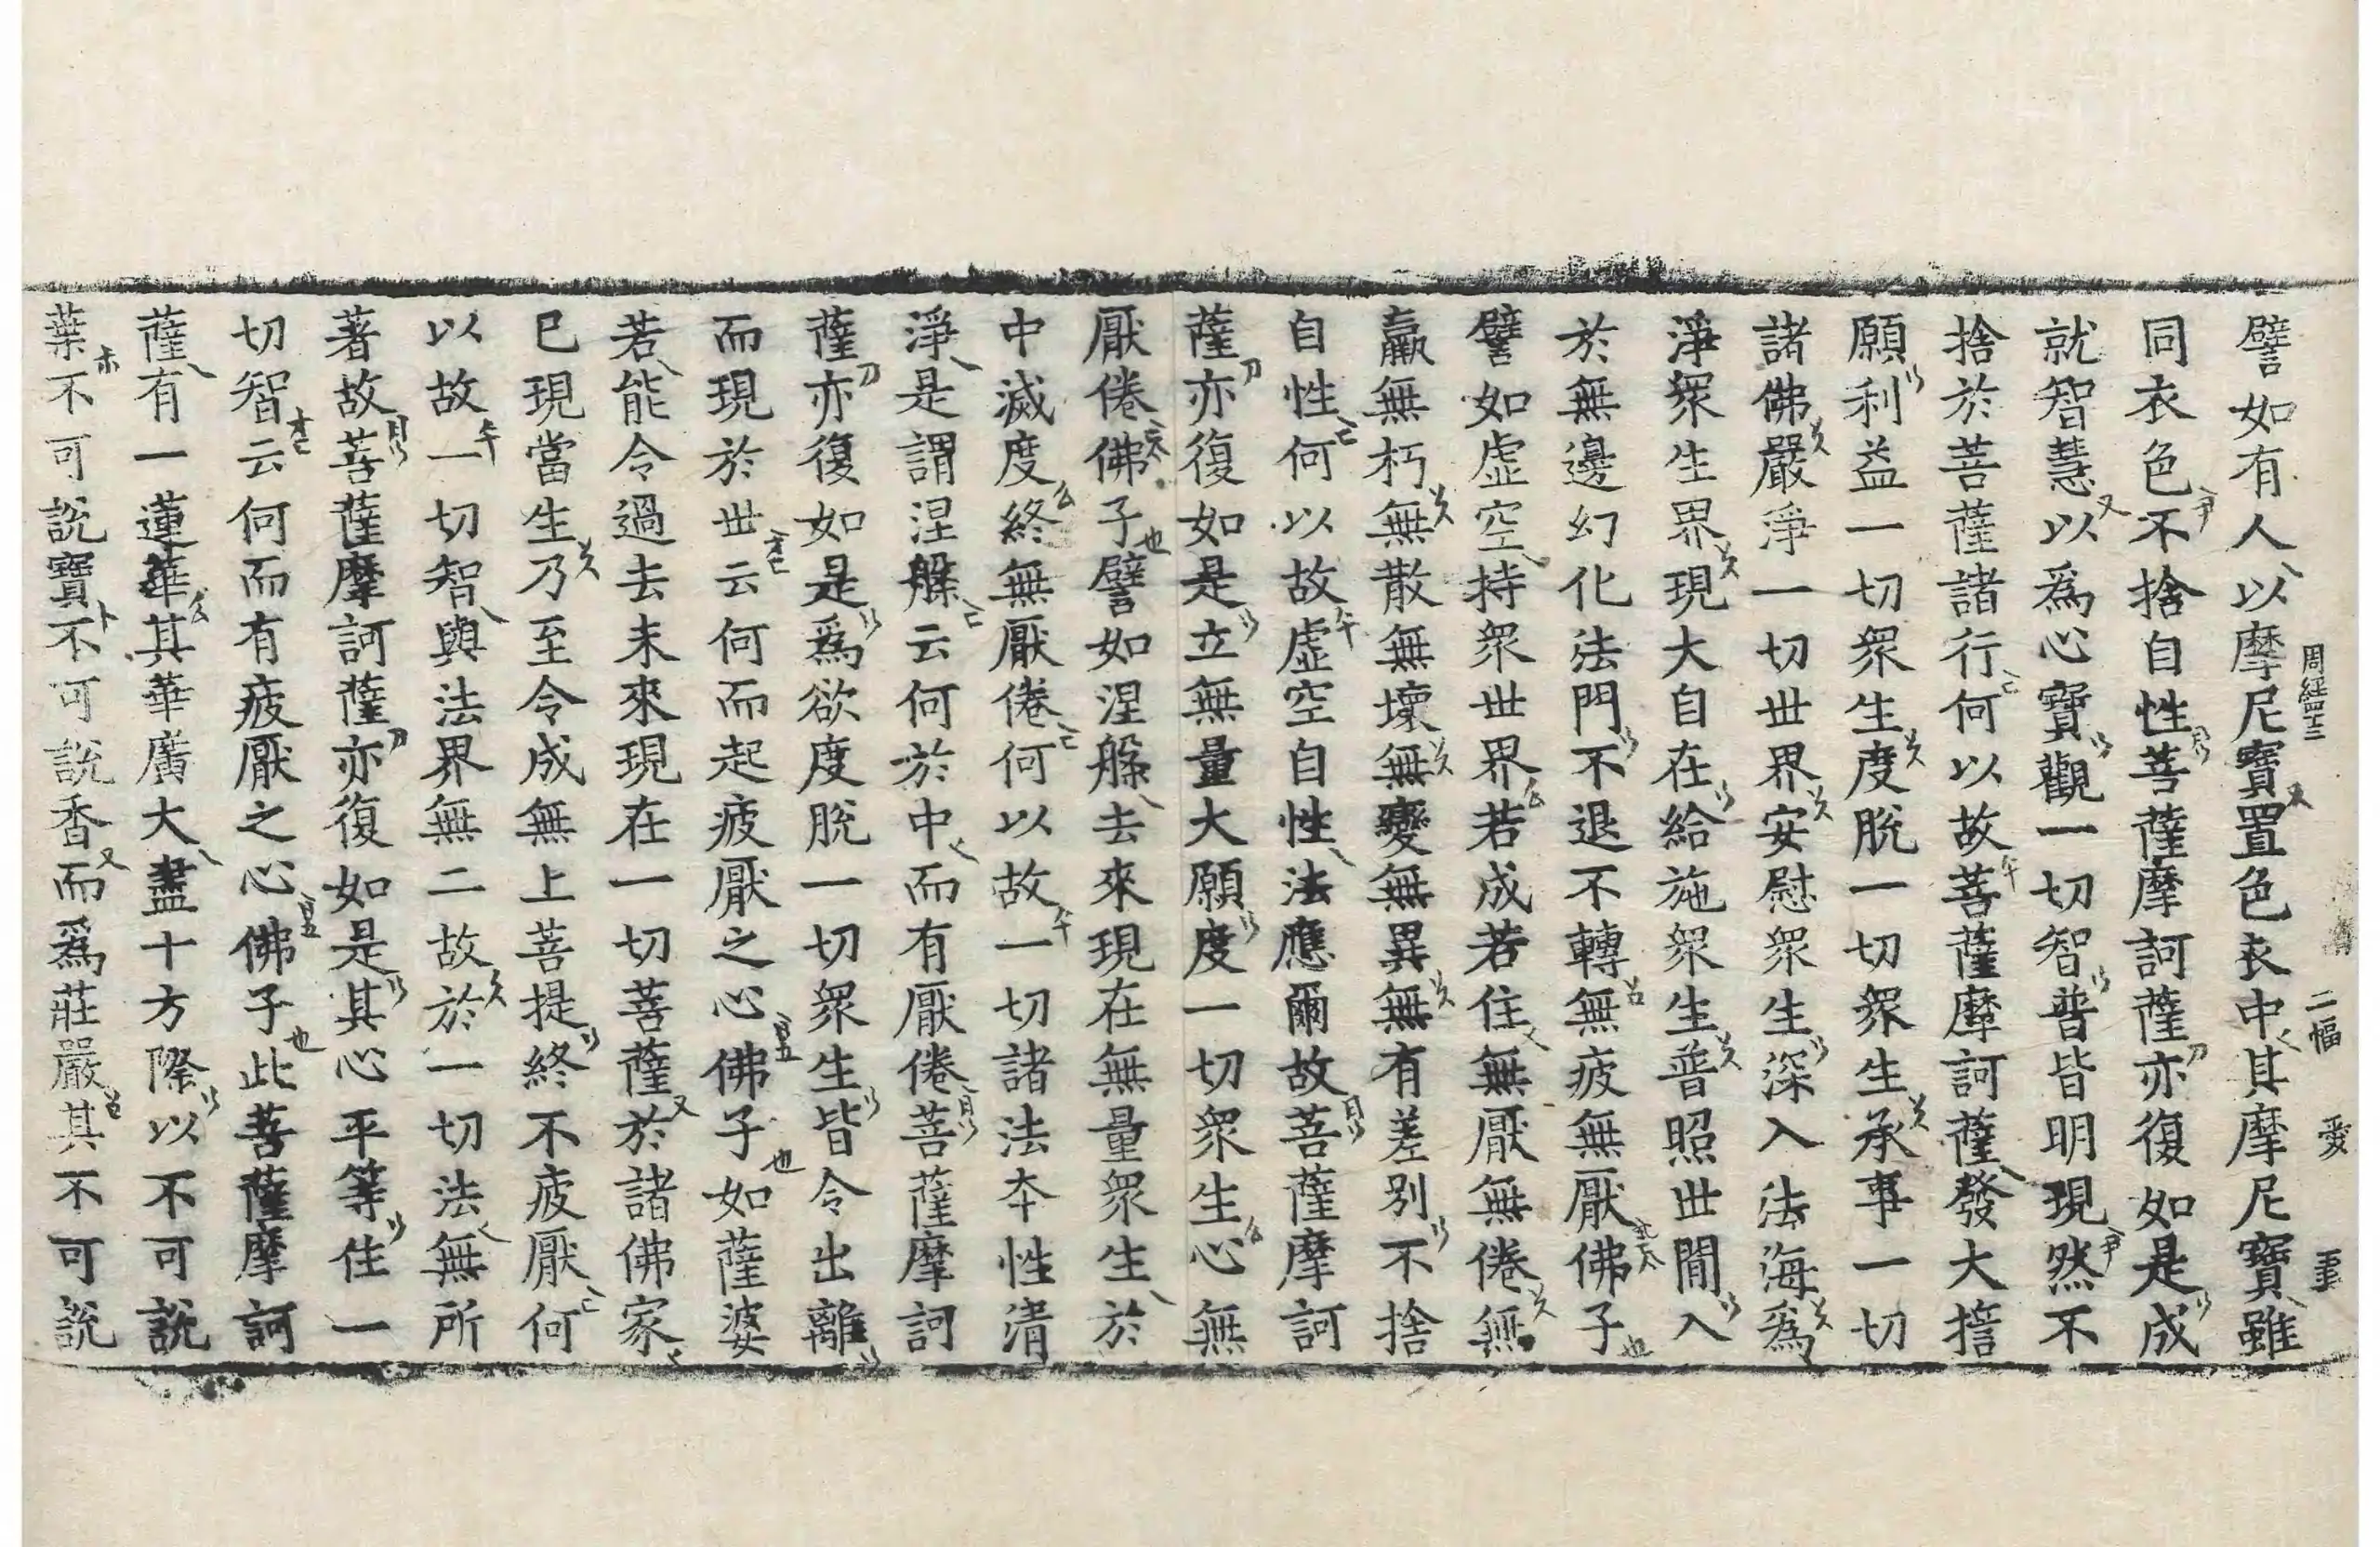 譬如有人以摩尼寶置色衣中其摩尼寶雖
同衣色不捨自性菩薩摩訶薩亦復如是成
就智慧以爲心寶觀一切智普皆明現然不
捨於菩薩諸行何以故菩薩摩訶薩發大誓
願利益一切衆生度脫一切衆生承事一切
諸佛嚴淨一切世界安慰衆生深入法海爲
淨衆生界現大自在給施衆生普照世間入
於無邊幻化法門不退不轉無疲無厭佛子
譬如虛空持衆世界若成若住無厭無倦無
羸無朽無散無壞無變無異無有差別不捨
自性何以故虛空自性法應爾故菩薩摩訶
薩亦復如是立無量大願度一切衆生心無
厭倦佛子譬如涅槃去來現在無量衆生於
中滅度終無厭倦何以故一切諸法本性清
淨是謂涅槃云何於中而有厭倦菩薩摩訶
薩亦復如是爲欲度脫一切衆生皆令出離
而現於世云何而起疲厭之心佛子如薩婆
若能令過去未來現在一切菩薩於諸佛家
已現當生乃至令成無上菩提終不疲厭何
以故一切智與法界無二故於一切法無所
著故菩薩摩訶薩亦復如是其心平等住一
切智云何而有疲厭之心佛子此菩薩摩訶
薩有一蓮華其華廣大盡十方際以不可說
葉不可說寶不可說香而爲莊嚴其不可說
周經四十三 二幅